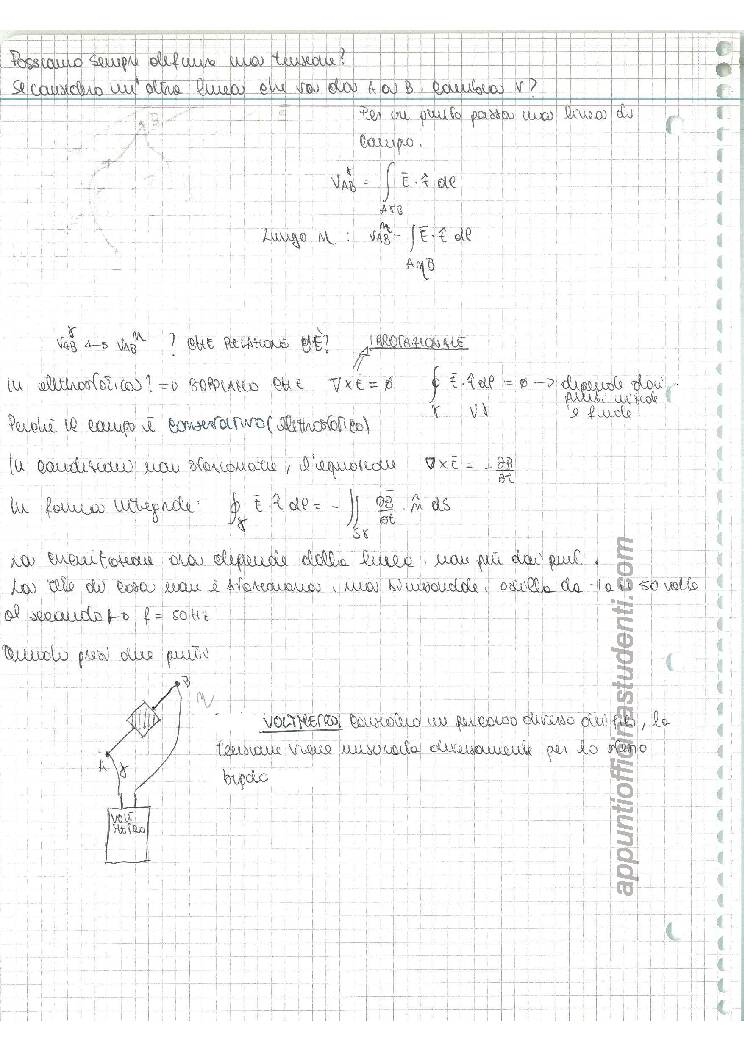 Possiamo sempre definire una tensione?
Se considero un'altra linea che va da A a B, cambia V?
B
Per un punto passa una linea di
campo.
V_AB^γ = ∫_AγB Ē · t̂ dl
Lungo η : V_AB^η = ∫_AηB Ē · t̂ dl
V_AB^γ ↔ V_AB^η ? CHE RELAZIONE C'È? IRROTAZIONALE
In elettrostatica? => SAPPIAMO CHE ∇×Ē = 0 ∮_γ Ē · t̂ dl = 0 → dipende dai
punti iniziale
e finale
Perché il campo è conservativo (elettrostatico)
In condizioni non stazionarie, l'equazione ∇×Ē = -∂B/∂t
In forma integrale: ∮_γ Ē · t̂ dl = - ∬_Sγ ∂B̄/∂t · n̂ dS
La circuitazione ora dipende dalla linea, non più dai punti.
La di casa non è stazionaria, ma sinusoidale, oscilla da -1 a 50 volte
al secondo f = 50 Hz
Quindi presi due punti:
B
η
A γ
VOLT
METRO
VOLTMETRO, considero un percorso diverso dei fili, la
tensione viene misurata diversamente per lo stesso
bipolo
appuntiofficinastudenti.com